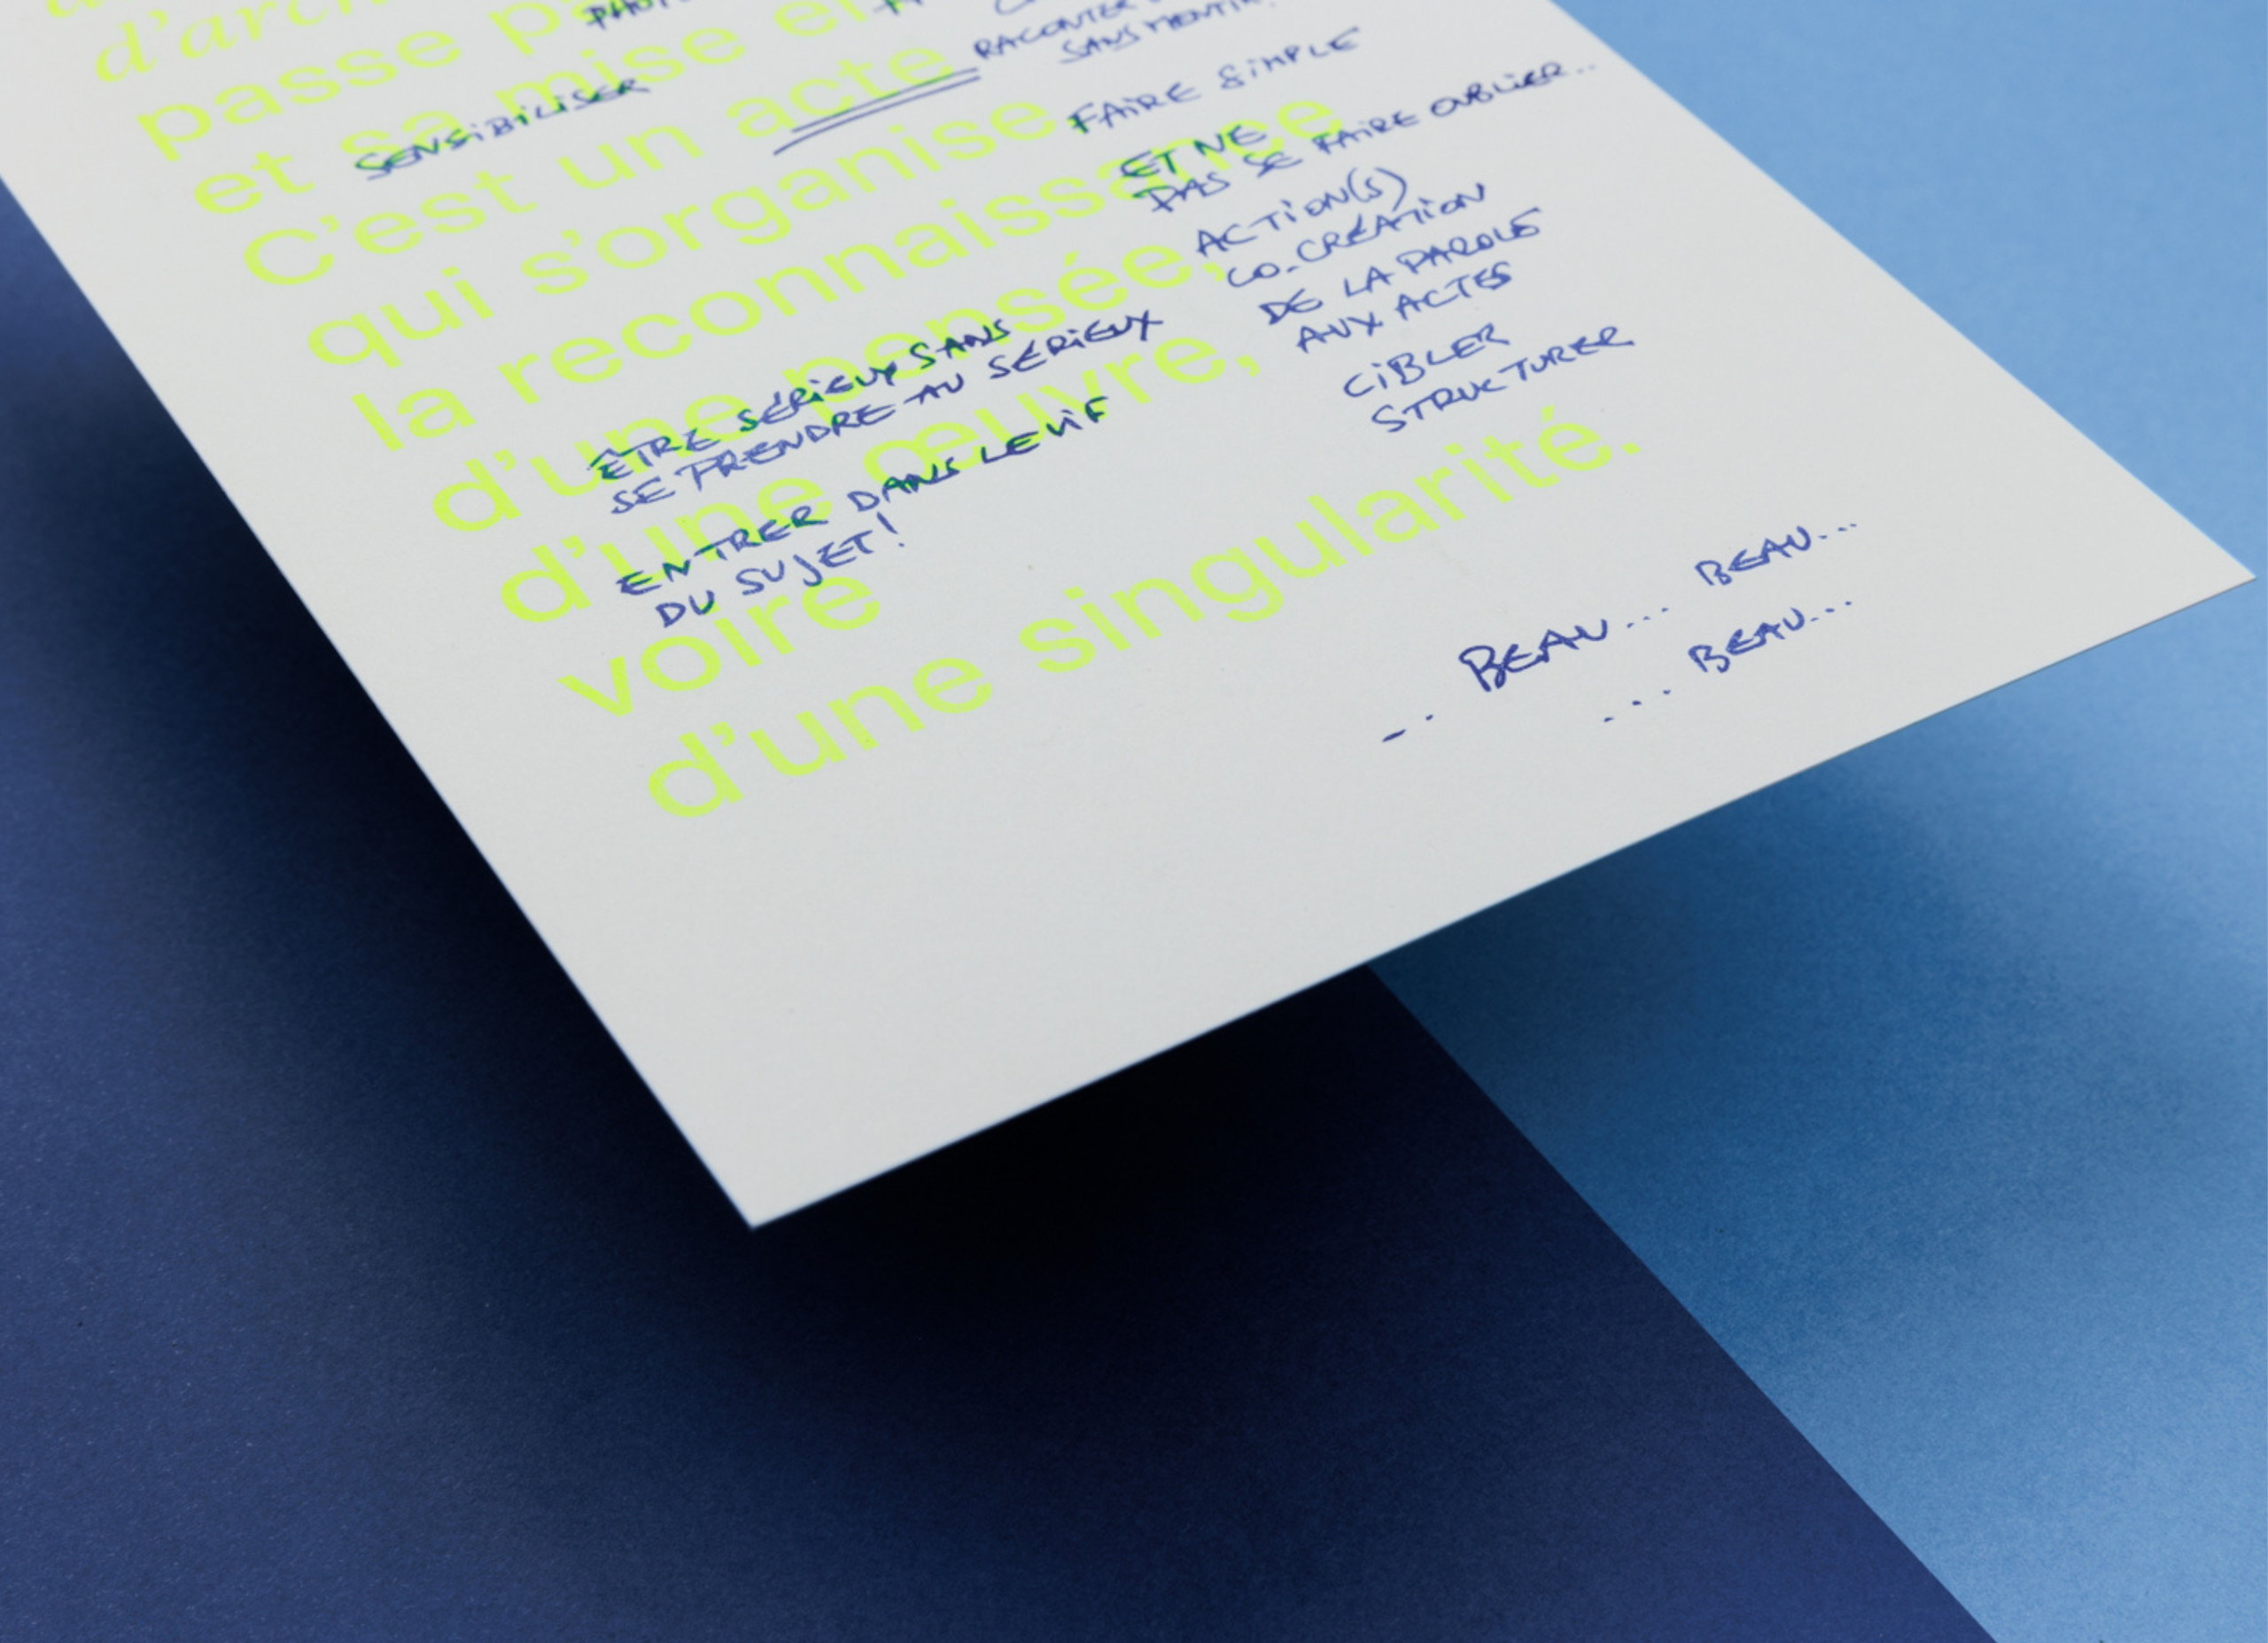 passe
et sa mise en
C'est un acte
qui s'organise
la reconnaissance
d'une pensée,
d'une œuvre,
voire
d'une singularité.
RACONTER
SANS MENTIR
SENSIBILISER
FAIRE SIMPLE
ET NE
PAS SE FAIRE OUBLIER...
ACTION(S)
CO-CRÉATION
DE LA PAROLE
AUX ACTES
CIBLER
STRUCTURER
ÊTRE SÉRIEUX SANS
SE PRENDRE AU SÉRIEUX
ENTRER DANS LE VIF
DU SUJET!
... BEAU... BEAU...
... BEAU...